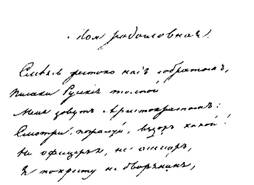 Моя родословная
Смѣясь жестоко надъ собратомъ,
Писаки Русскіе толпой
Меня зовутъ Аристократомъ:
Смотри, пожалуй, вздоръ какой!
Не офицеръ я, не
Я по кресту не дворянинъ,